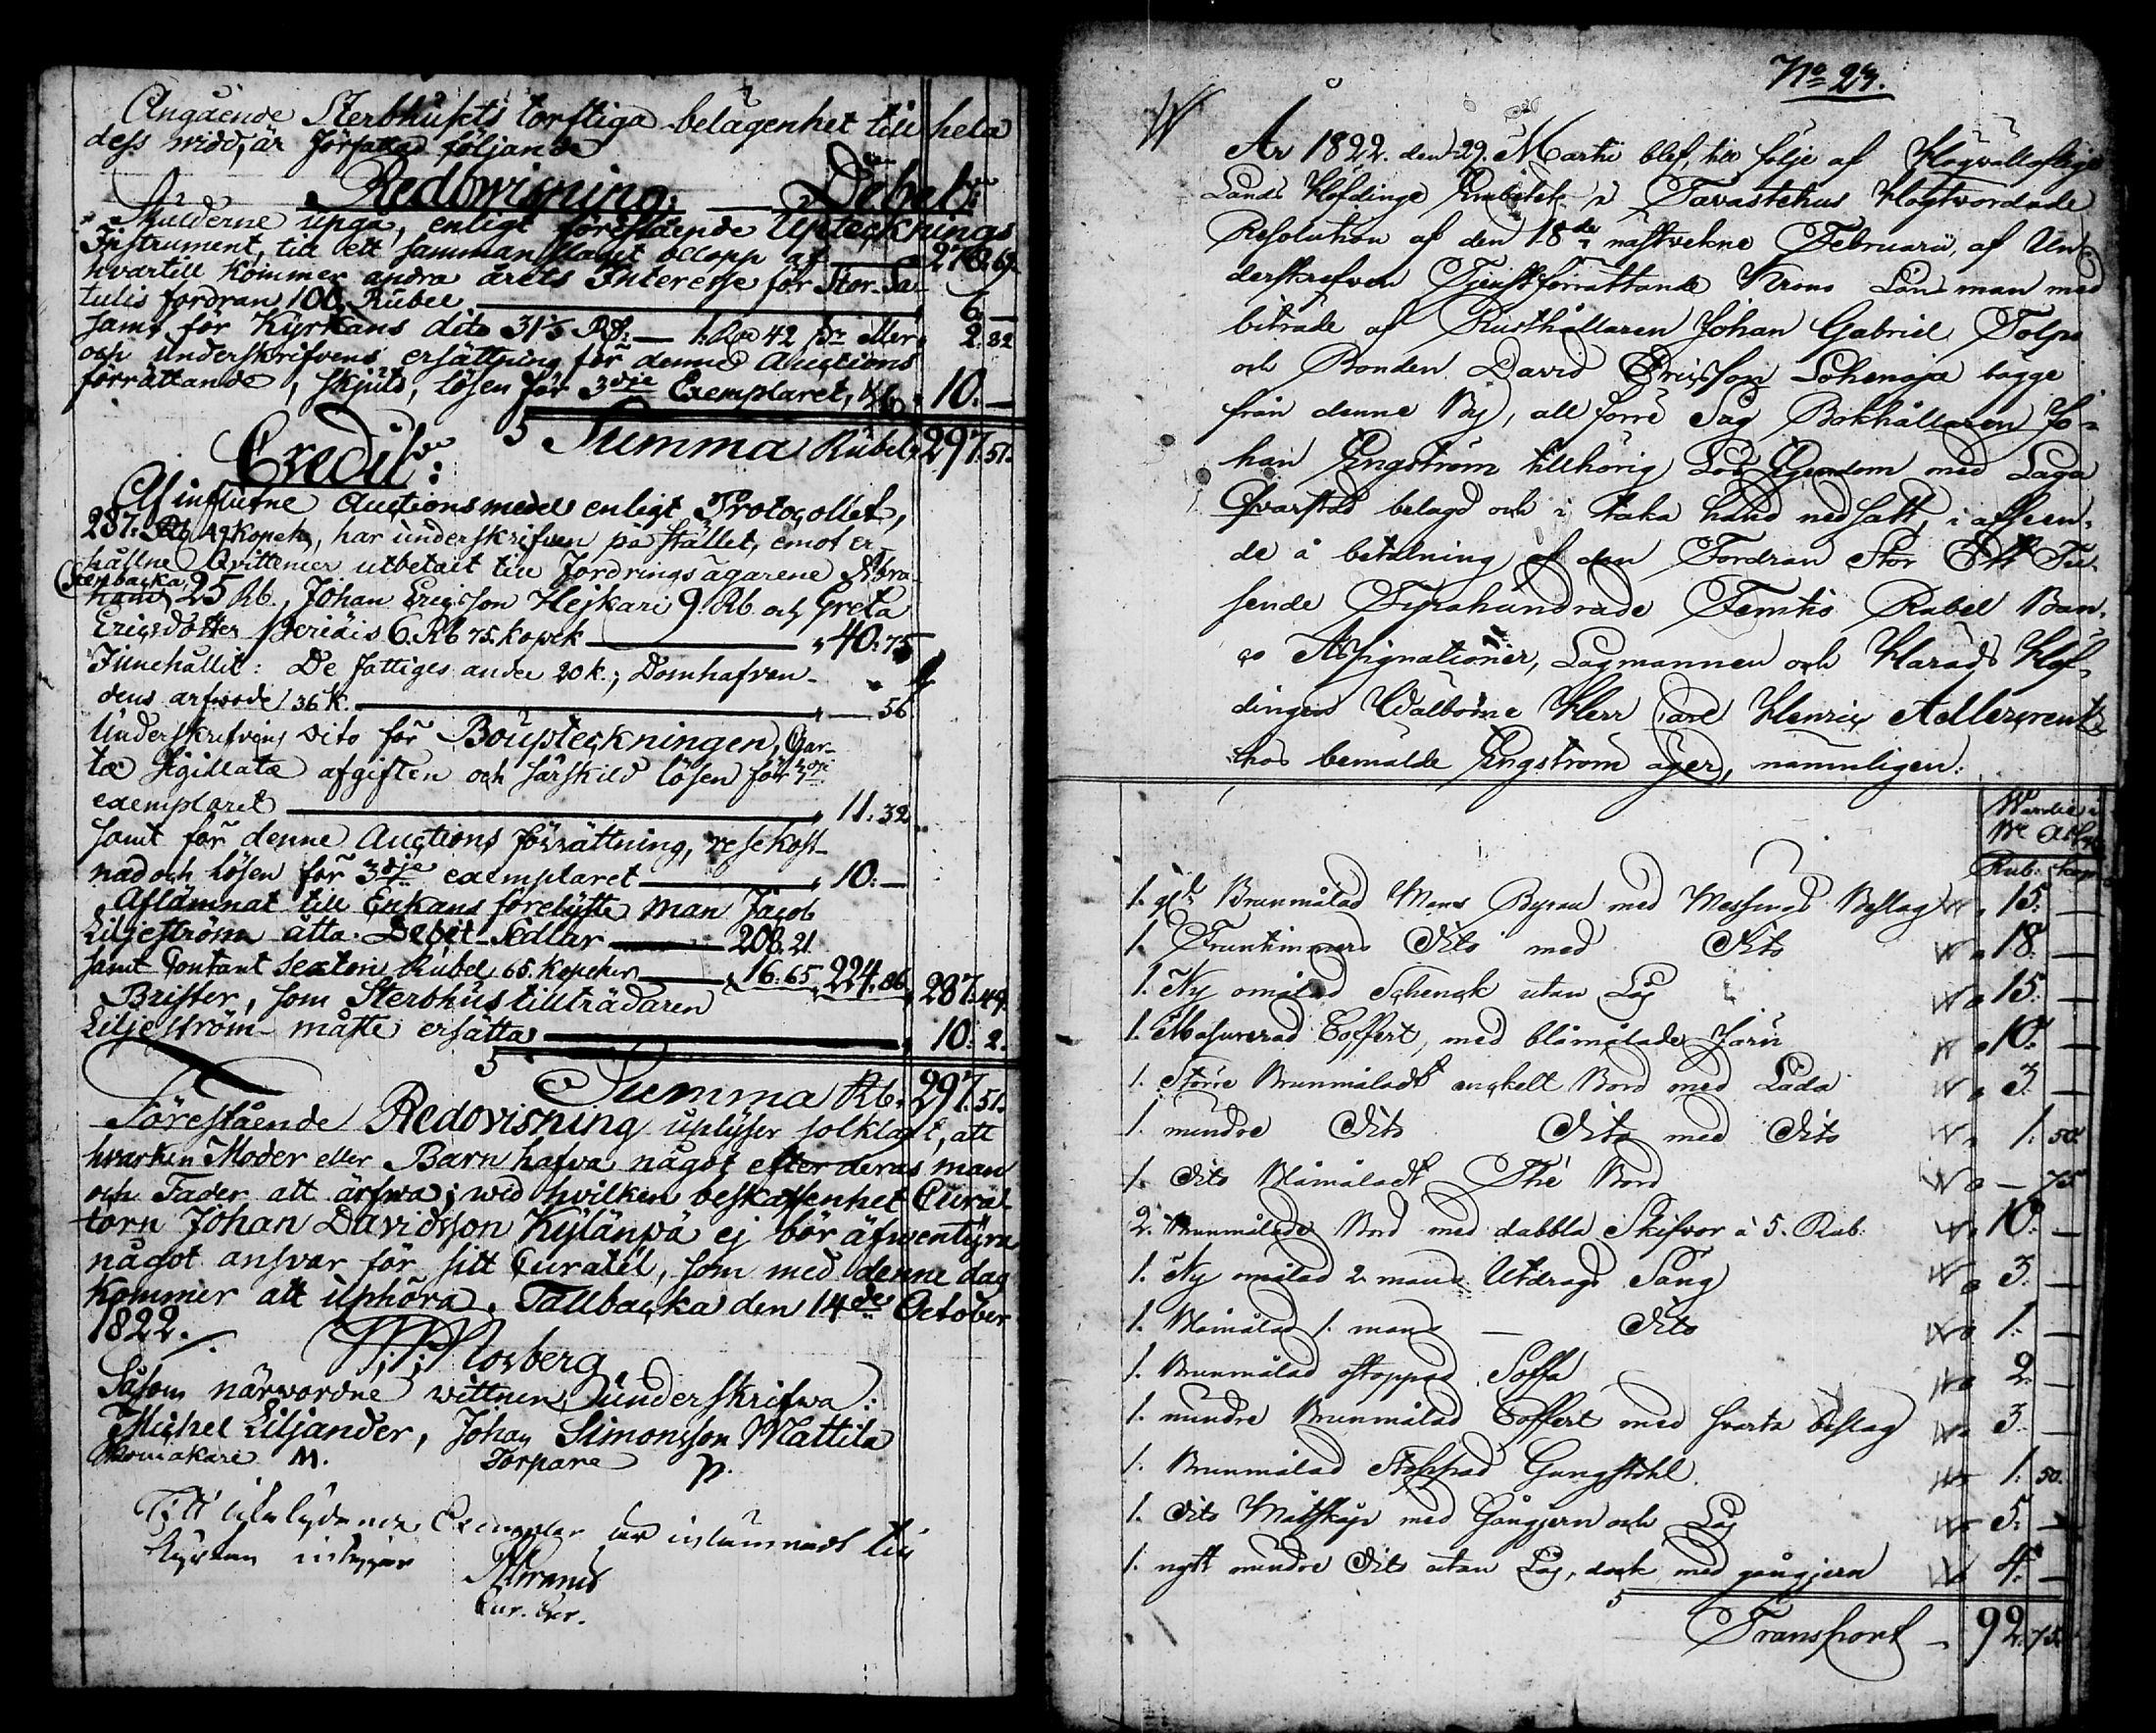 Angående Sterbhusets torftiga belägenhet till hela
dess widd, är författad följande
Redowisning: Debet:
Skulderne upgå, enligt förestående Uptecknings
Instrument, till ett sammanslaget belopp af 278. 69.
hvartill kommer andra årets Interesse för Stor-Sa-
tulis fordran 100 Rubel 6. —
samt för Kyrkans dito 31⅓ Rb. — 1. Rb 42 eller 2. 82
och underskrifvens ersättning för denne Auctions
förrättande, skjuts, lösen för 3dje Exemplaret, 10. —
Summa Rubel 297. 51.
Credit:
Af influtne Auctionsmedel enligt Protocollet,
287. Rb. 49 Kopek, har underskrifven på stället, emot er-
hållne Qvittencer utbetalt till fordringsägarene Abra-
ham Stenbacka 25 Rb., Johan Ericsson Hejkari 9. Rb. och Greta
Ericsdotter 6. Rb 75. kopek 40. 75
Innehållit: De fattiges andel 20 k.; Domhafvan-
dens arfwode 36 K. — 56.
Underskrifvens Dito för Boupteckningen, Char-
tæ Sigillatæ afgiften och särskild lösen för 3dje
exemplaret 11. 32
samt för denne Auctions förrättning, resekost-
nad och lösen för 3dje exemplaret 10. —
Aflämnat till Enkans förelyfte man Jacob
Liljeström åtta Debet-Sedlar 208. 21.
samt Contant sexton Rubel 65. Kopeker 16. 65. 224. 86. 287. 49.
Brister, som Sterbhustillträdaren
Liljeström måste ersätta 10. 2.
Summa Rb. 297. 51.
Förestående Redovisning uplyser solklart, att
hvarken Moder eller Barn hafva något efter deras man
och Fader att ärfwa; wid hvilken beskaffenhet Cura-
torn Johan Davidsson Kylänpä ej bör äfwentyra
något ansvar för sitt Curatel, som med denne dag
kommer att uphöra. Tallbacka den 14de October
1822.
Norberg
Såsom närwordne wittnen underskrifwa:
Michel Liljander, Johan Simonsson Mattila
Skomakare M. Torpare
Ett lika lydande Exemplar har inlämnadt till
Abrams
No 29.
År 1822. den 29. Martii blef, till följe af Högvällofliga
Lands Höfdinge Embetets i Tavastehus Högtvördade
Resolution af den 18de nästvekne Februarii, af Un-
derskrefven Tjenstförrättande Krono Länsman med
biträde af Rusthållaren Johan Gabriel Tolpo
och Bonden David Ericsson Lohenoja bägge
från denne By, all förre Såg Bokhållaren Jo-
han Engström tillhörig Lös Egendom med Laga
Qvarstad belagd och i taka hand nedsatt, i afseen-
de å betalning af den Fordran Stor Ett Tu-
sende Fyrahundrade Femtio Rubel Ban-
co Assignationer, Lagmannen och Härads Höf-
dingen Wälborne Herr Carl Henric Adlercreutz
hos bemälde Engström äger, nämnligen:
Rub. Kop.
1. st. Brunmålad Mans Byrau med Messings Beslag 15. —
1. Fruntimmers Dito med Dito 18. —
1. Ny omålad Schenck utan Lås 15. —
1. Masurerad Coffert, med blåmålade Järn 10. —
1. Större Brunmåladt enckelt Bord med Låda 3. —
1. mindre Dito Dito med Dito 1. 50.
1. Dito Blåmåladt Thé Bord — 75
2. Brunmålade Bord med dubbla Skifvor à 5. Rub. 10. —
1. Ny omålad 2. mans Utdrags Säng 3. —
1. Blåmålad 1. mans — Dito 1. —
1. Brunmålad ostoppad Soffa 2. —
1. mindre Brunmålad Coffert med svarta beslag 3. —
1. Brunmålad Stoppad Gungstohl 1. 50.
1. Dito Matskåp med Gångjern och Lås 5. —
1. nytt mindre Dito utan Lås, dock med gångjern 4. —
Transport — 92. 75.